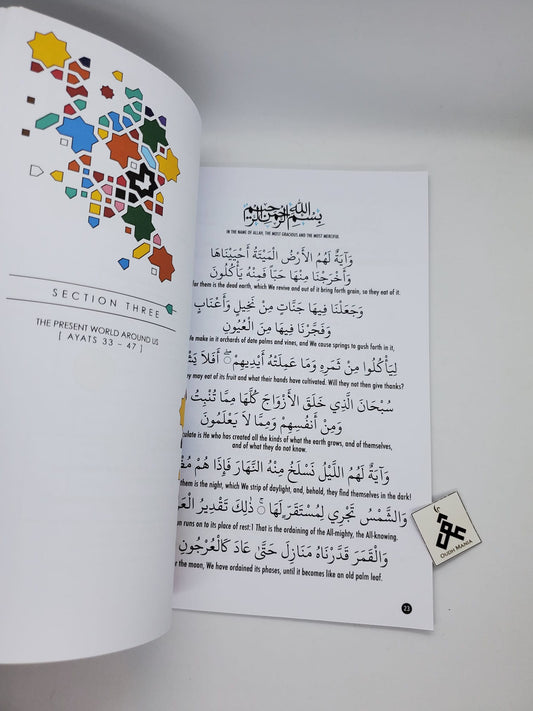 SECTION THREE
THE PRESENT WORLD AROUND US
[ AYATS 33 – 47 ]
بِسْمِ اللهِ الرَّحْمٰنِ الرَّحِيْمِ
IN THE NAME OF ALLAH, THE MOST GRACIOUS AND THE MOST MERCIFUL
وَآيَةٌ لَهُمُ الأَرْضُ المَيْتَةُ أَحْيَيْنَاهَا
وَأَخْرَجْنَا مِنْهَا حَبّاً فَمِنْهُ يَأْكُلُونَ
for them is the dead earth, which We revive and out of it bring forth grain, so they eat of it.
وَجَعَلْنَا فِيهَا جَنَّاتٍ مِنْ نَخِيلٍ وَأَعْنَابٍ
وَفَجَّرْنَا فِيهَا مِنَ الْعُيُونِ
We make in it orchards of date palms and vines, and We cause springs to gush forth in it,
لِيَأْكُلُوا مِنْ ثَمَرِهِ وَمَا عَمِلَتْهُ أَيْدِيهِمْ ۖ أَفَلَا
may eat of its fruit and what their hands have cultivated. Will they not then give thanks?
سُبْحَانَ الَّذِي خَلَقَ الأَزْوَاجَ كُلَّهَا مِمَّا تُنْبِتُ
وَمِنْ أَنْفُسِهِمْ وَمِمَّا لَا يَعْلَمُونَ
is He who has created all the kinds of what the earth grows, and of themselves,
and of what they do not know.
وَآيَةٌ لَهُمُ اللَّيْلُ نَسْلَخُ مِنْهُ النَّهَارَ فَإِذَا هُمْ
them is the night, which We strip of daylight, and, behold, they find themselves in the dark!
وَالشَّمْسُ تَجْرِي لِمُسْتَقَرٍّ لَهَا ۚ ذَٰلِكَ تَقْدِيرُ
runs on to its place of rest: That is the ordaining of the All-mighty, the All-knowing.
وَالْقَمَرَ قَدَّرْنَاهُ مَنَازِلَ حَتَّىٰ عَادَ كَالْعُرْجُونِ
for the moon, We have ordained its phases, until it becomes like an old palm leaf.
23
OUDH MANIA